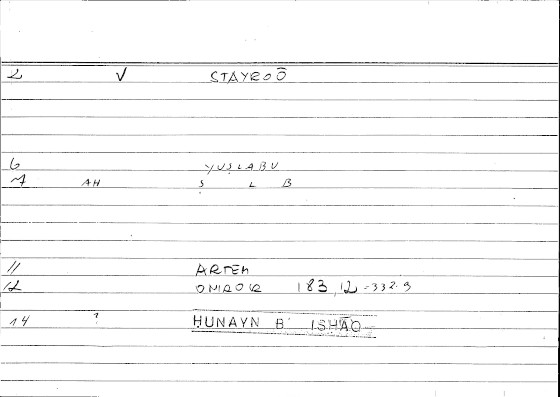 2 V STAYROŌ
6 YUṢLABU
7 AH Ṣ L B
11 ARTEM
12 ONIROCR 183,12 = 332.9
14 ? HUNAYN B ISHĀQ